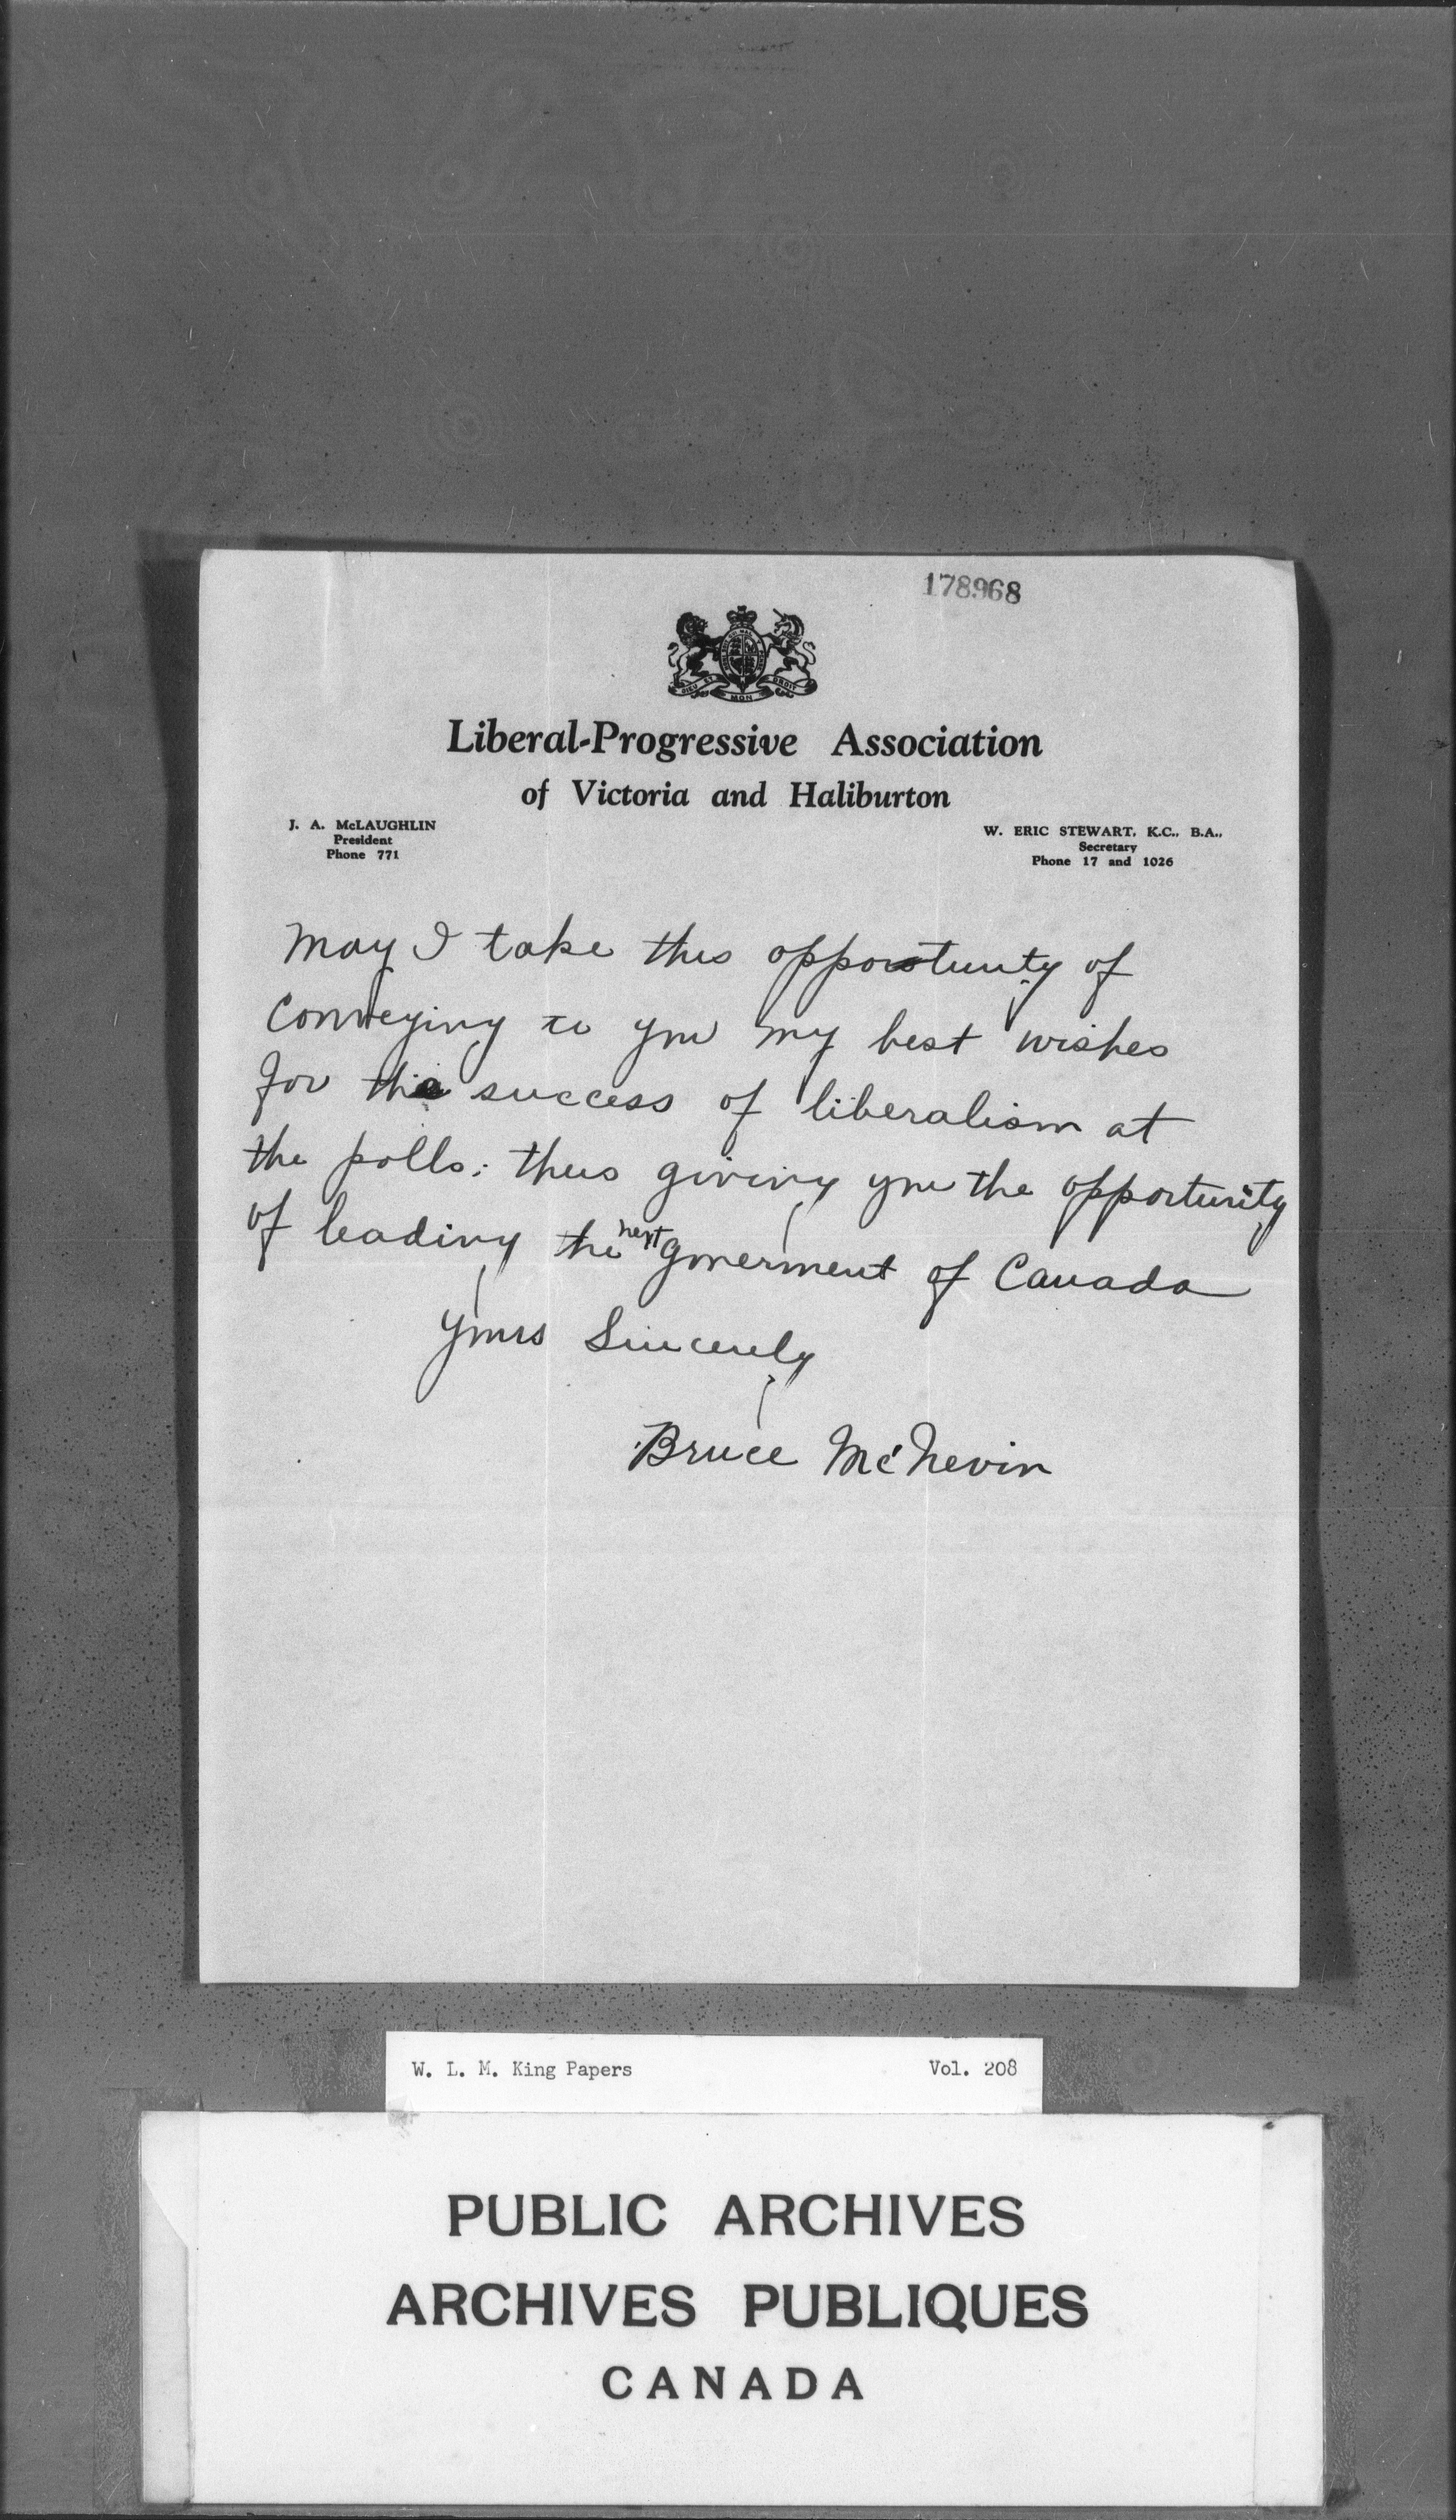 178968
DIEU ET MON DROIT
Liberal-Progressive Association
of Victoria and Haliburton
J. A. McLAUGHLIN
President
Phone 771
W. ERIC STEWART, K.C., B.A.,
Secretary
Phone 17 and 1026
May I take this opportunity of
Conveying to you my best wishes
for the success of liberalism at
the polls; thus giving you the opportunity
of leading the next goverment of Canada
Yours Sincerely
Bruce McNevin
W. L. M. King Papers Vol. 208
PUBLIC ARCHIVES
ARCHIVES PUBLIQUES
CANADA